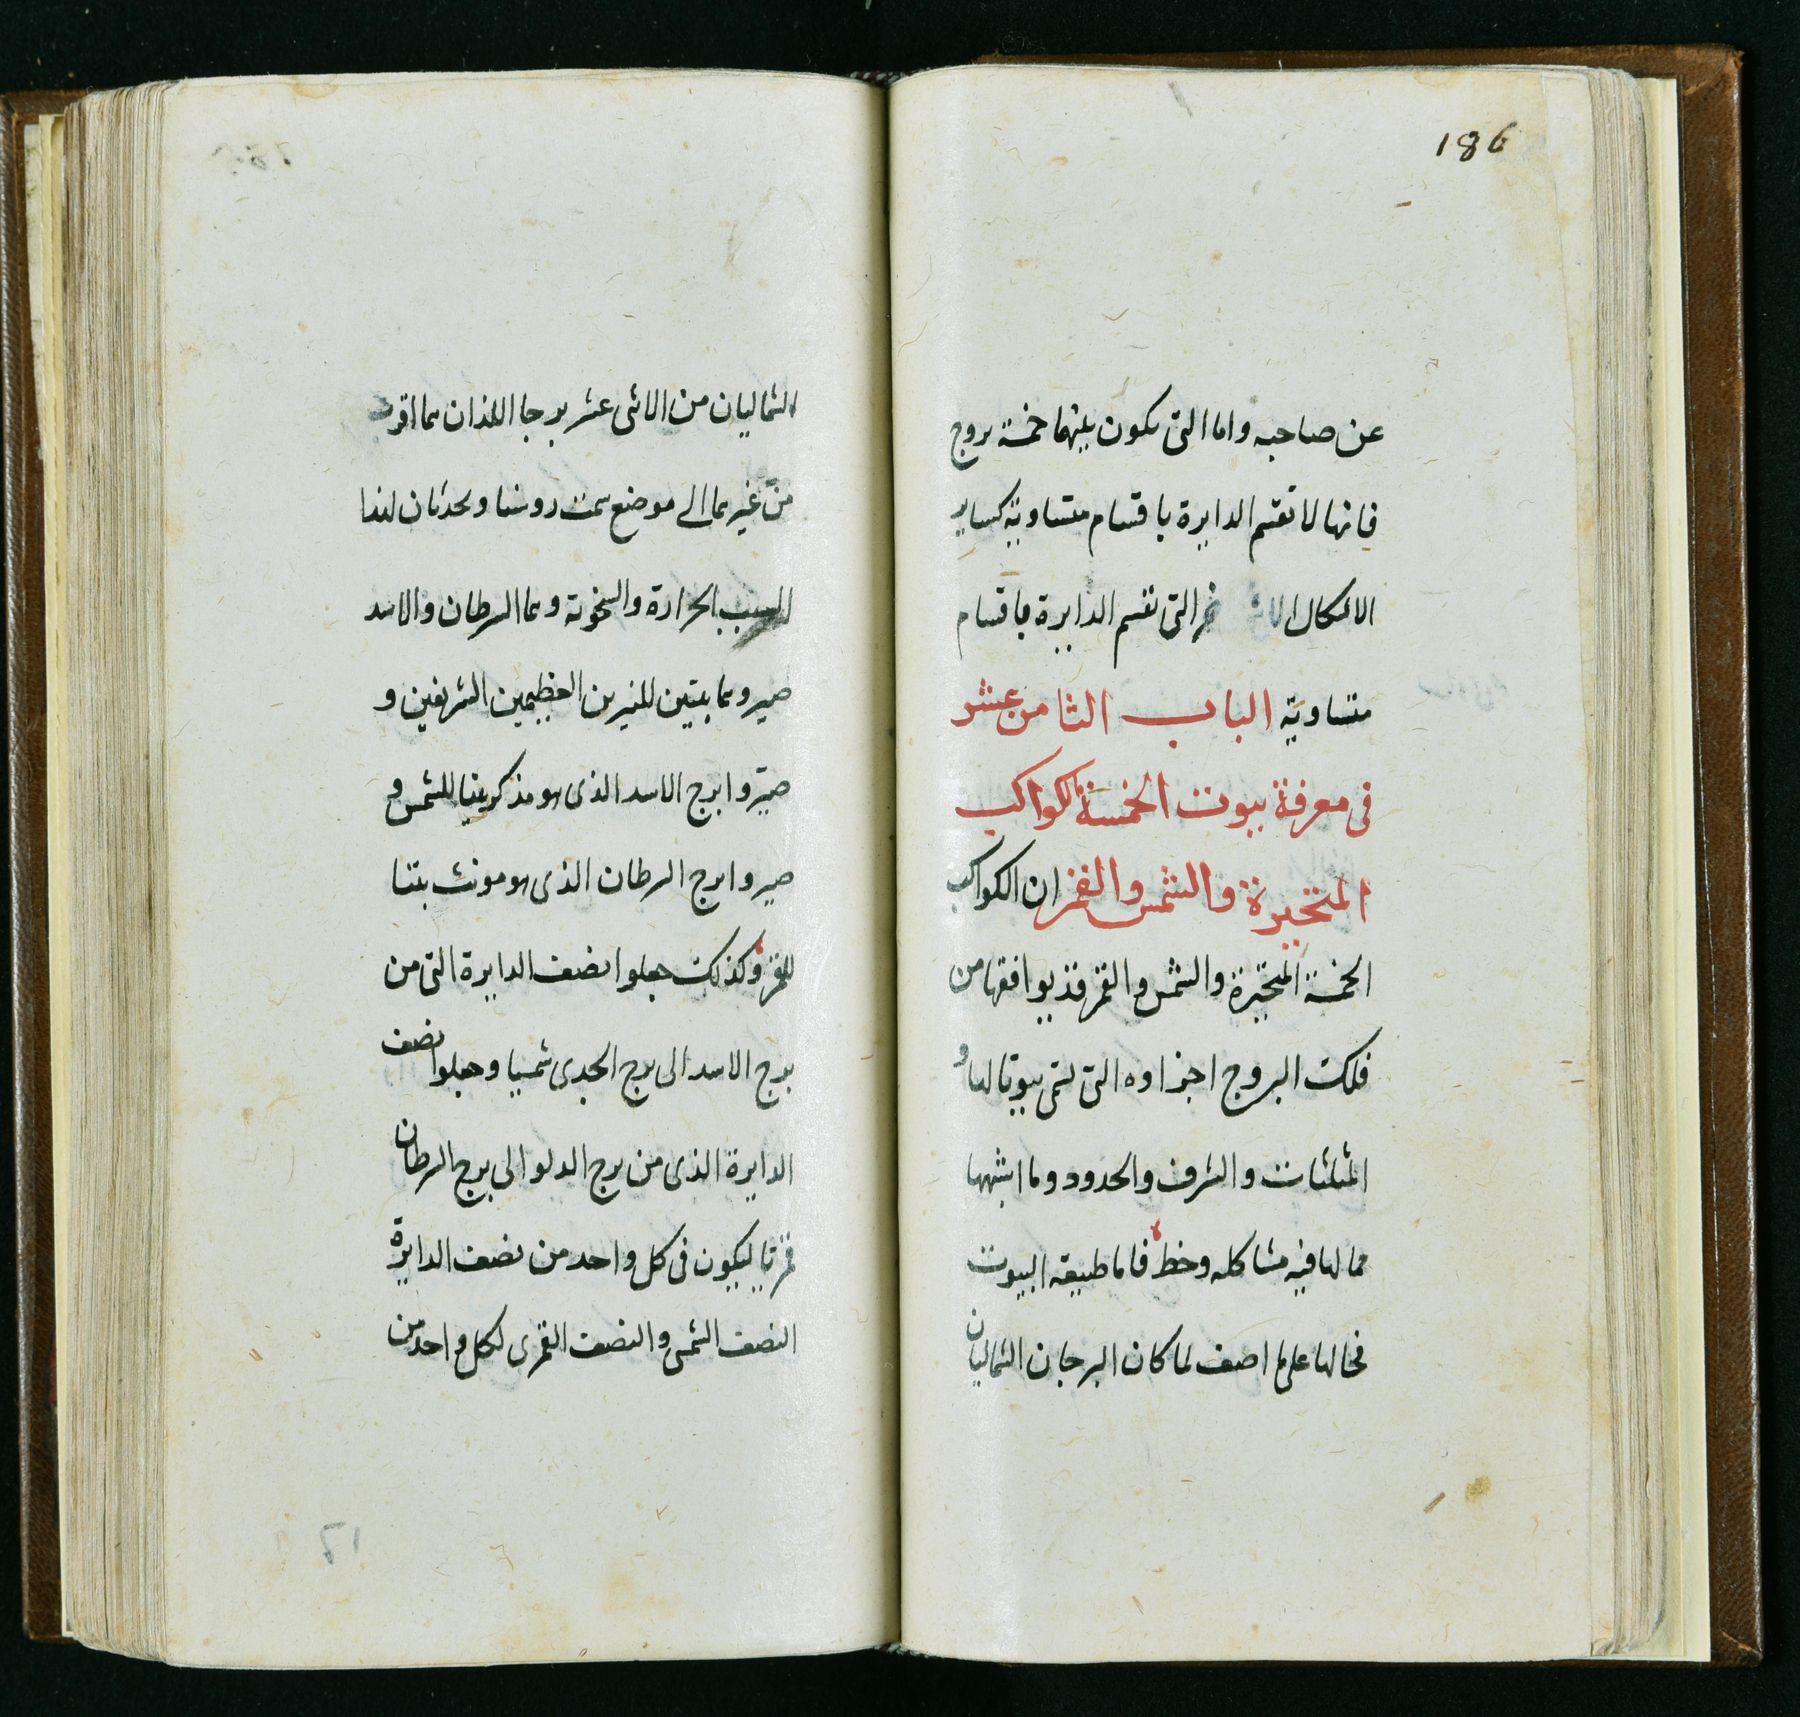 186
عن صاحبه واما التى يكون بينهما خمسة بروج
فانها لا تقسم الدايرة باقسام متساوية كساير
الاشكال التى تقسم الدايرة باقسام
متساوية الباب الثامن عشر
فى معرفة بيوت الخمسة الكواكب
المتحيرة والشمس والقمر ان الكواكب
الخمسة المتحيرة والشمس والقمر قد يوافقها من
فلك البروج اجزاوه التى تسمى بيوتا لها و
المثلثات والشرف والحدود وما اشبهها
مما لها فيه مشاكله وحظ فاما طبيعة البيوت
فحالها على ما اصف لما كان البرجان الشماليان
الشماليان من الاثنى عشر برجا اللذان هما اقرب
من غيرهما الى موضع سمت روسنا ويحدثان لهذا
السبب الحرارة والسخونة وهما السرطان والاسد
صيروهما بيتين للنيرين العظيمين الشريفين و
صيروا برج الاسد الذى هو مذكر بيتا للشمس و
صيروا برج السرطان الذى هو مونث بيتا
للقمر وكذلك جعلوا نصف الدايرة التى من
برج الاسد الى برج الجدى شمسيا وجعلوا نصف
الدايرة الذى من برج الدلو الى برج السرطان
قمريا ليكون فى كل واحد من نصف الدايرة
النصف الشمسى والنصف القمرى لكل واحد من